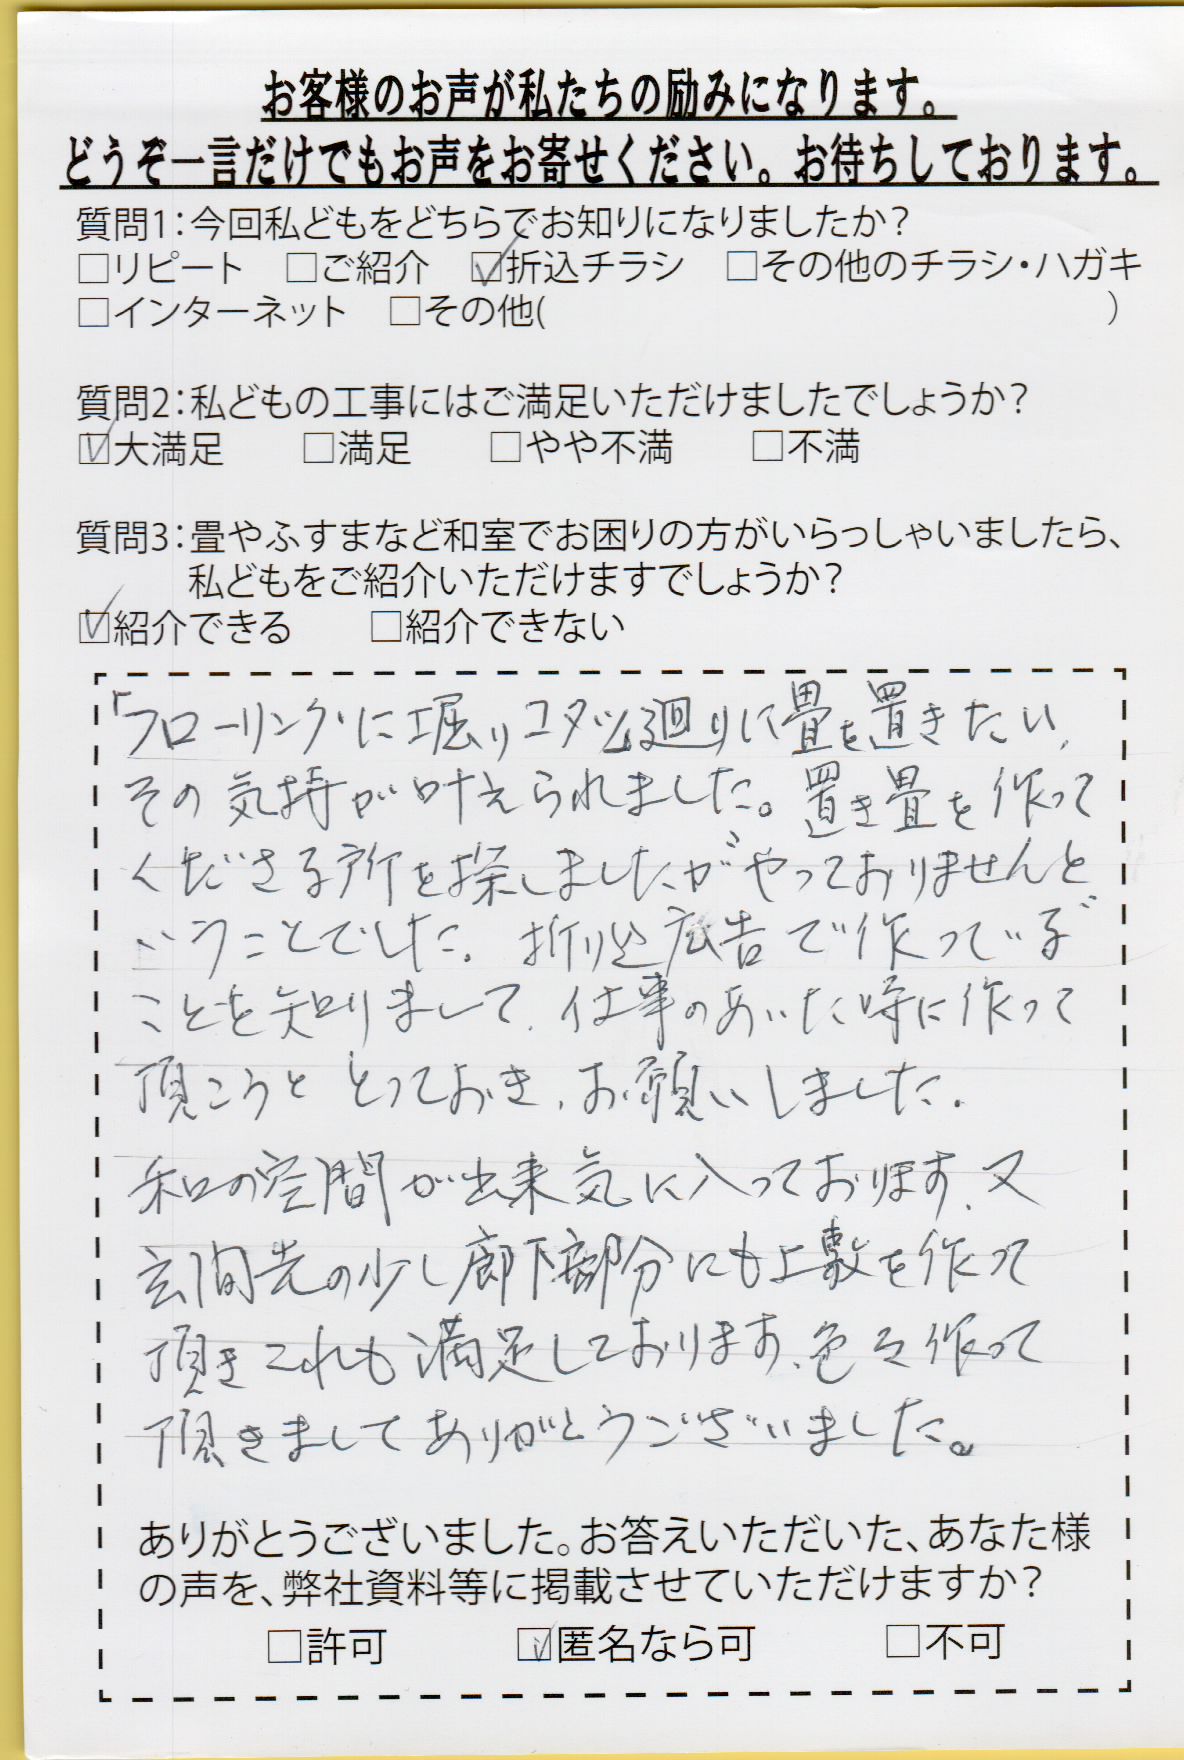 お客様のお声が私たちの励みになります。
どうぞ一言だけでもお声をお寄せください。お待ちしております。
質問1:今回私どもをどちらでお知りになりましたか?
□リピート □ご紹介 ☑折込チラシ □その他のチラシ・ハガキ
□インターネット □その他( )
質問2:私どもの工事にはご満足いただけましたでしょうか?
☑大満足 □満足 □やや不満 □不満
質問3:畳やふすまなど和室でお困りの方がいらっしゃいましたら、
私どもをご紹介いただけますでしょうか?
☑紹介できる □紹介できない
「フローリングに堀りコタツ廻りに畳を置きたい、
その気持が叶えられました。置き畳を作って
くださる所を探しましたがやっておりませんと
いうことでした。折り込広告で作っている
ことを知りまして、仕事のあいた時に作って
頂こうと とっておき、お願いしました。
和の空間が出来気に入っております、又
玄関先の少し廊下部分にも上敷を作って
頂きこれも満足しております、色々作って
頂きましてありがとうございました。
ありがとうございました。お答えいただいた、あなた様
の声を、弊社資料等に掲載させていただけますか?
□許可 ☑匿名なら可 □不可